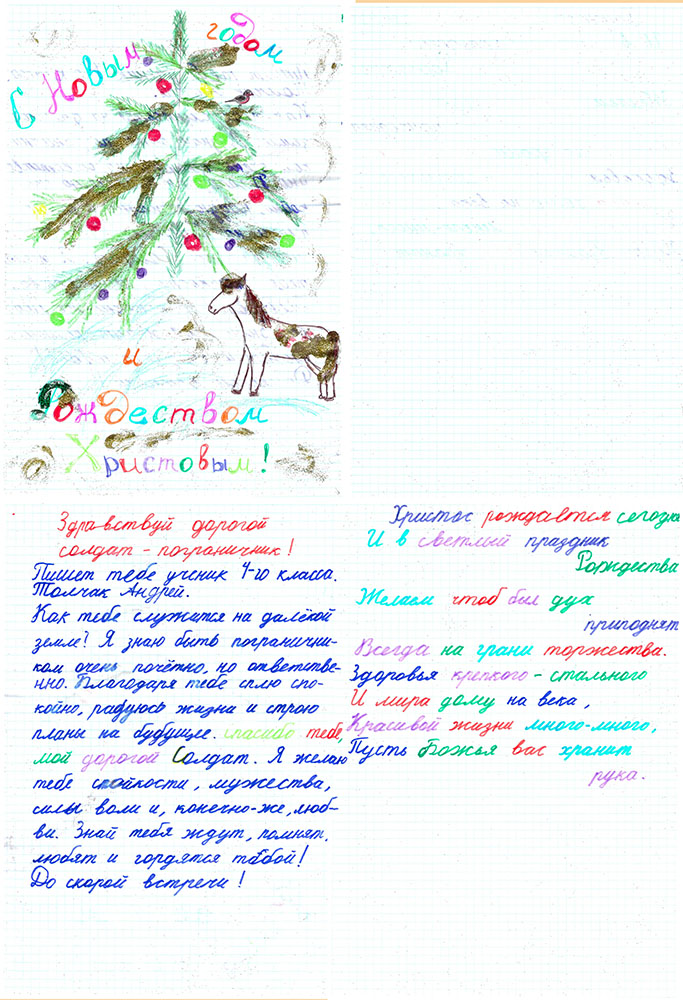 С Новым годом
и
Рождеством
Христовым!
Здравствуй дорогой
солдат - пограничник!
Пишет тебе ученик 4-го класса.
Толчак Андрей.
Как тебе служится на далёкой
земле? Я знаю быть погранични-
ком очень почётно, но ответстве-
нно. Благодаря тебе сплю спо-
койно, радуюсь жизни и строю
планы на будущее. спасибо тебе,
мой дорогой Солдат. Я желаю
тебе стойкости, мужества,
силы воли и, конечно-же, люб-
ви. Знай тебя ждут, помнят,
любят и гордятся тобой!
До скорой встречи!
Христос рождается сегодня
И в светлый праздник
Рождества
Желаем чтоб был дух
приподнят
Всегда на грани торжества.
Здоровья крепкого - стального
И мира дому на века,
Красивой жизни много-много,
Пусть Божья вас хранит
рука.